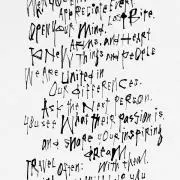 Appreciate every
Last Bite.
Open your Mind,
Arms, and Heart
to New Things and People
We Are United in
Our Differences.
Ask the Next Person
you see What their Passion is,
and share your inspiring
dream
With them.
Travel Often;